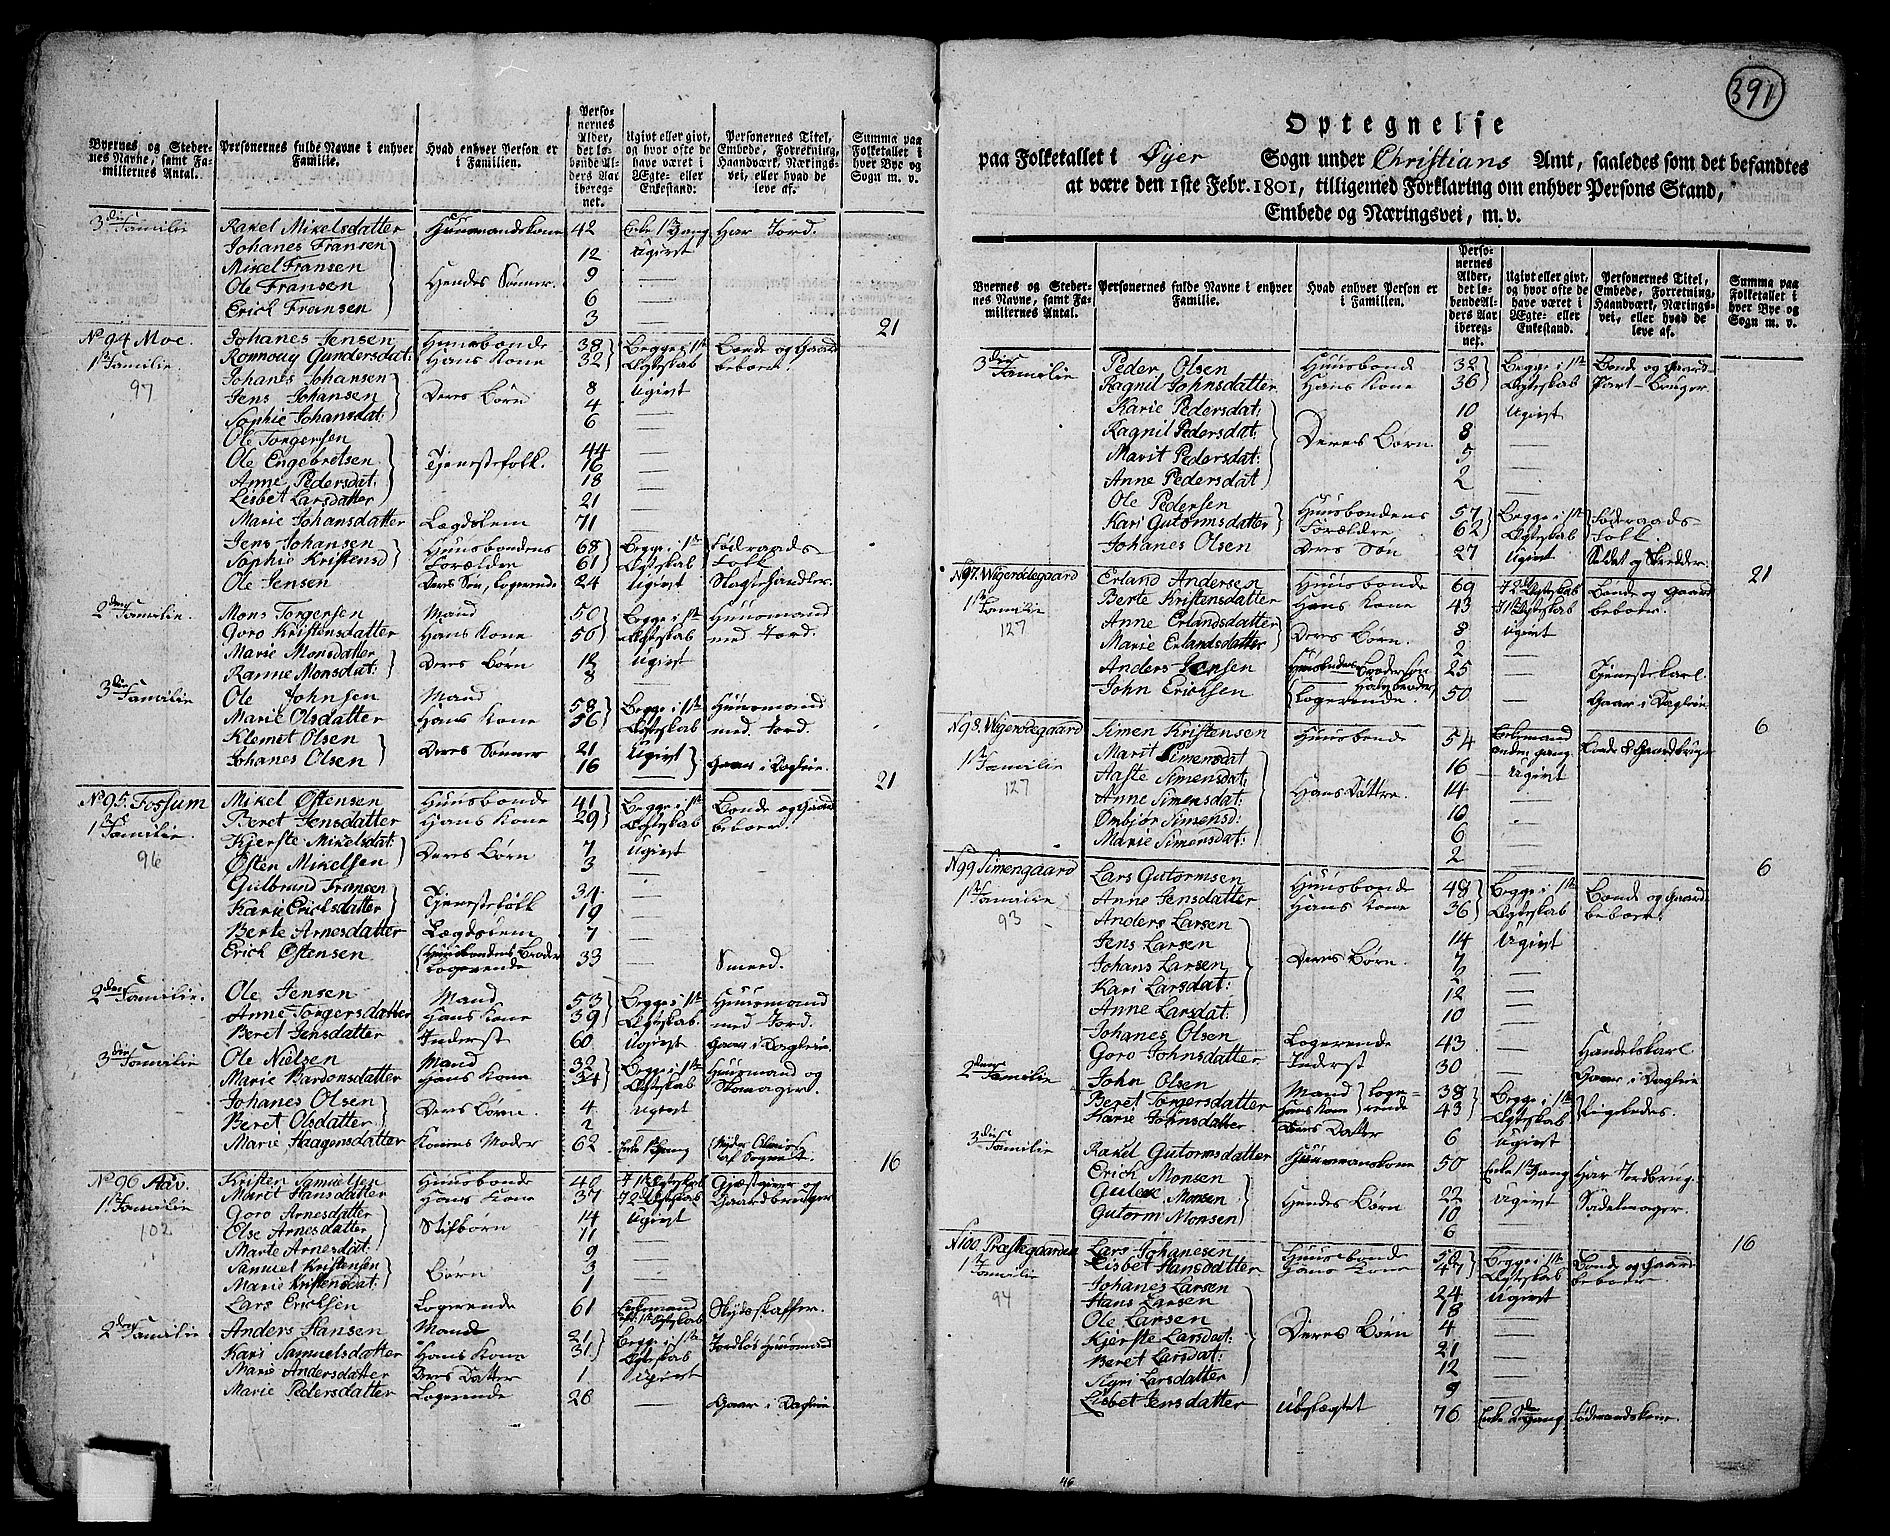 Byernes og Steder-
nes Navne, samt Fa-
miliernes Antal.
Personernes fulde Navne i enhver
Familie.
Hvad enhver Person er
i Familien.
Perso-
nernes
Alder,
det lø-
bende Al-
ders Aar
ibereg-
net.
Ugivt eller givt,
og hvor ofte de
have været i
Ægte- eller
Enkestand.
Personernes Titel,
Embede, Forretning,
Haandværk, Nærings-
vei, eller hvad de
leve af.
Summa paa
Folketallet i
hver Bye og
Sogn m. v.
3die Familie Rakel Mikelsdatter Huusmandskone 42 Enke 1ste Gang Har Jord.
Johanes Fransen 12 Ugivt
Mikel Fransen 9 —
Ole Fransen Hendes Sønner. 6 —
Erick Fransen 3 —
21
No 94 Moe. Johanes Jensen Huusbonde 38 Begge i 1ste Bonde og Gaard
1ste Familie Ronnouy Gundersdat: Hans Kone 32 Ægteskab beboer.
97
Johanes Johansen 8 Ugivt
Jens Johansen Deres Børn 4 —
Sophie Johansdat: 6 —
Ole Torgersen 44 —
Ole Engebretsen Tjenestefolk. 16 —
Anne Pedersdat: 18 —
Lisbet Larsdatter 21 —
Marie Johansdatter Lægdslem 71 —
Jens Johansen Huusbondens 68 Begge i 1ste Føderaads-
Sophie Kristensd Forældre 61 Ægteskab folk
Ole Jensen Deres Søn, Logerende 24 Ugivt Slagthandler.
2den Familie. Mons Torgersen Mand 50 Begge i 1ste Huusmand
Goro Kristensdatter Hans Kone 56 Ægteskab med Jord.
Marie Monsdatter Deres Børn 12 Ugivt
Ranne Monsdat: 8 —
3die Familie Ole Johnsen Mand 58 Begge i 1ste Huusmand
Marie Olsdatter Hans Kone 56 Ægteskab med Jord.
Klemet Olsen Deres Sønner 21 Ugivt
Johanes Olsen 16 — Gaar i Dagleie.
21
No 95. Fossum Mikel Østensen Huusbonde 41 Begge i 1ste Bonde og Gaard
1ste Familie. Beret Jensdatter Hans Kone 29 Ægteskab beboer.
96
Kjerste Mikelsdat: Deres Børn 7 Ugivt
Østen Mikelsen 3 —
Gulbrand Fransen Tjenestefolk 34 —
Karie Ericksdatter 19 —
Berte Arnesdatter Lægdslem 7 —
Erick Østensen Huusbondens Broder Logerende 33 — Smeed.
2den Familie. Ole Jensen Mand 53 Begge i 1ste Huusmand
Anne Torgersdatter Hans Kone 39 Ægteskab. med Jord.
Beret Jensdatter Inderst 60 Ugivt Gaar i Dagleie.
3die Familie Ole Nielsen Mand 32 Begge i 1ste Huusmand og
Marie Bardonsdatter Hans Kone 34 Ægteskab Skomager.
Johanes Olsen Deres Børn. 4 Ugivt
Beret Olsdatter 2 —
Marie Haagensdatter Konens Moder 62 Enke Gang Nyder Almisse af Sognet.
16
No 96 Aav. Kristen Samuelsen Huusbonde 40 1ste Ægteskab Gjæstgiver og
1ste Familie Marit Hansdatter Hans Kone 37 2det Ægteskab Gaardbruger
102
Goro Arnesdatter 14 Ugivt
Olse Arnesdatter Stifbørn 11 —
Marte Arnesdat: 9 —
Samuel Kristensen Børn 3 —
Marie Kristensdat: 1 —
Lars Ericksen Logerende 61 Enkemand 1ste Ægteskab Skydsskaffer.
2den Familie Anders Hansen Mand 21 Begge i 1ste Jordløs Huusmand
Kari Samuelsdatter Hans Kone 31 Ægteskab
Marie Andersdatter Deres Datter 1 Ugivt
Marie Pedersdatter Logerende 26 — Gaar i Dagleie
391
Optegnelse
paa Folketallet i Øyer Sogn under Christians Amt, saaledes som det befandtes
at være den 1ste Febr. 1801, tilligemed Forklaring om enhver Persons Stand,
Embede og Næringsvei, m. v.
Byernes og Steder-
nes Navne, samt Fa-
miliernes Antal.
Personernes fulde Navne i enhver
Familie.
Hvad enhver Person er
i Familien.
Perso-
nernes
Alder,
det lø-
bende Al-
ders Aar
ibereg-
net.
Ugivt eller givt,
og hvor ofte de
have været i
Ægte- eller
Enkestand.
Personernes Titel,
Embede, Forretning,
Haandværk, Nærings-
vei, eller hvad de
leve af.
Summa paa
Folketallet i
hver Bye og
Sogn m. v.
3die Familie Peder Olsen Huusbond 32 Begge i 1ste Bonde og Gaard-
Ragnil Johnsdatter Hans Kone 36 Ægteskab Part-Bruger.
Karie Pedersdat: 10 Ugivt
Ragnil Pedersdat: Deres Børn. 8 —
Marit Pedersdat: 5 —
Anne Pedersdat 2 —
Ole Pedersen Huusbondens 57 Begge i 1ste Føderaads-
Kari Gutormsdatter Forældre 62 Ægteskab folk.
Johanes Olsen Deres Søn 27 Ugivt Soldat og Skrædder
21
N 97. Wigerødegaard Erland Andersen Huusbonde 69 2det Ægteskab Bonde og Gaard
1ste Familie Berte Kristensdatter Hans Kone 43 1ste Ægteskab beboer.
127
Anne Erlandsdatter Deres Børn. 8 Ugivt
Marie Erlandsdatter 2 —
Anders Jensen Huusbondes Brodersøn 25 — Tjenestekarl.
John Ericksen Halvbroder, Logerende. 50 — Gaar i Dagleie
6
N 98. Wigerødegaard Simen Kristensen Huusbonde 54 Enkemand anden gang. Bonde & Gaardbruger
1ste Familie Marit Simensdat 16 Ugivt
127
Aaste Simensdat: Hans Døttre. 14 —
Anne Simensdat:
Ombjør Simensd: 10 —
6 —
Marie Simensdat: 2 —
6
N 99 Simengaard Lars Gutormsen Huusbonde 48 Begge i 1ste Bonde og Gaard
1ste Familie Anne Jensdatter Hans Kone 36 Ægteskab beboer.
93
Anders Larsen 14 Ugivt
Jens Larsen 7 —
Johans Larsen Deres Børn. 2 —
Kari Larsdat: 12 —
Anne Larsdat: 10 —
Johanes Olsen Logerende 43 — Handelskarl
Goro Johnsdatter Inderst 30 — Gaar i Dagleie
2den Familie John Olsen Mand Loge- 38 Begge i 1ste
Beret Torgersdatter Hans Kone rende 43 Ægteskab
Karie Johnsdatter Deres Datter 6 Ugivt
3die Familie Rakel Gutormsdatter Huusmanskone 50 Enke 1ste Gang Har Jordbrug
Erick Monsen 22 Ugivt Sadelmager.
Monsen Hendes Børn 10 —
Gutorm Monsen 6 —
16
N 100 Præstegaarden Lars Johanesen Huusbonde 50 Begge i 1ste Bonde og Gaard
1ste Familie Lisbet Hansdatter Hans Kone 47 Ægteskab beboer
94
Johanes Larsen 24 Ugivt
Hans Larsen 18 —
Ole Larsen Deres Børn 4 —
Kjerste Larsdat: 21 —
Beret Larsdat: 12 —
Larsdatter 9 —
Lisbet Jensdatter Ubeslægtet 76 Enke 2den Gang Føderaadskone.
46